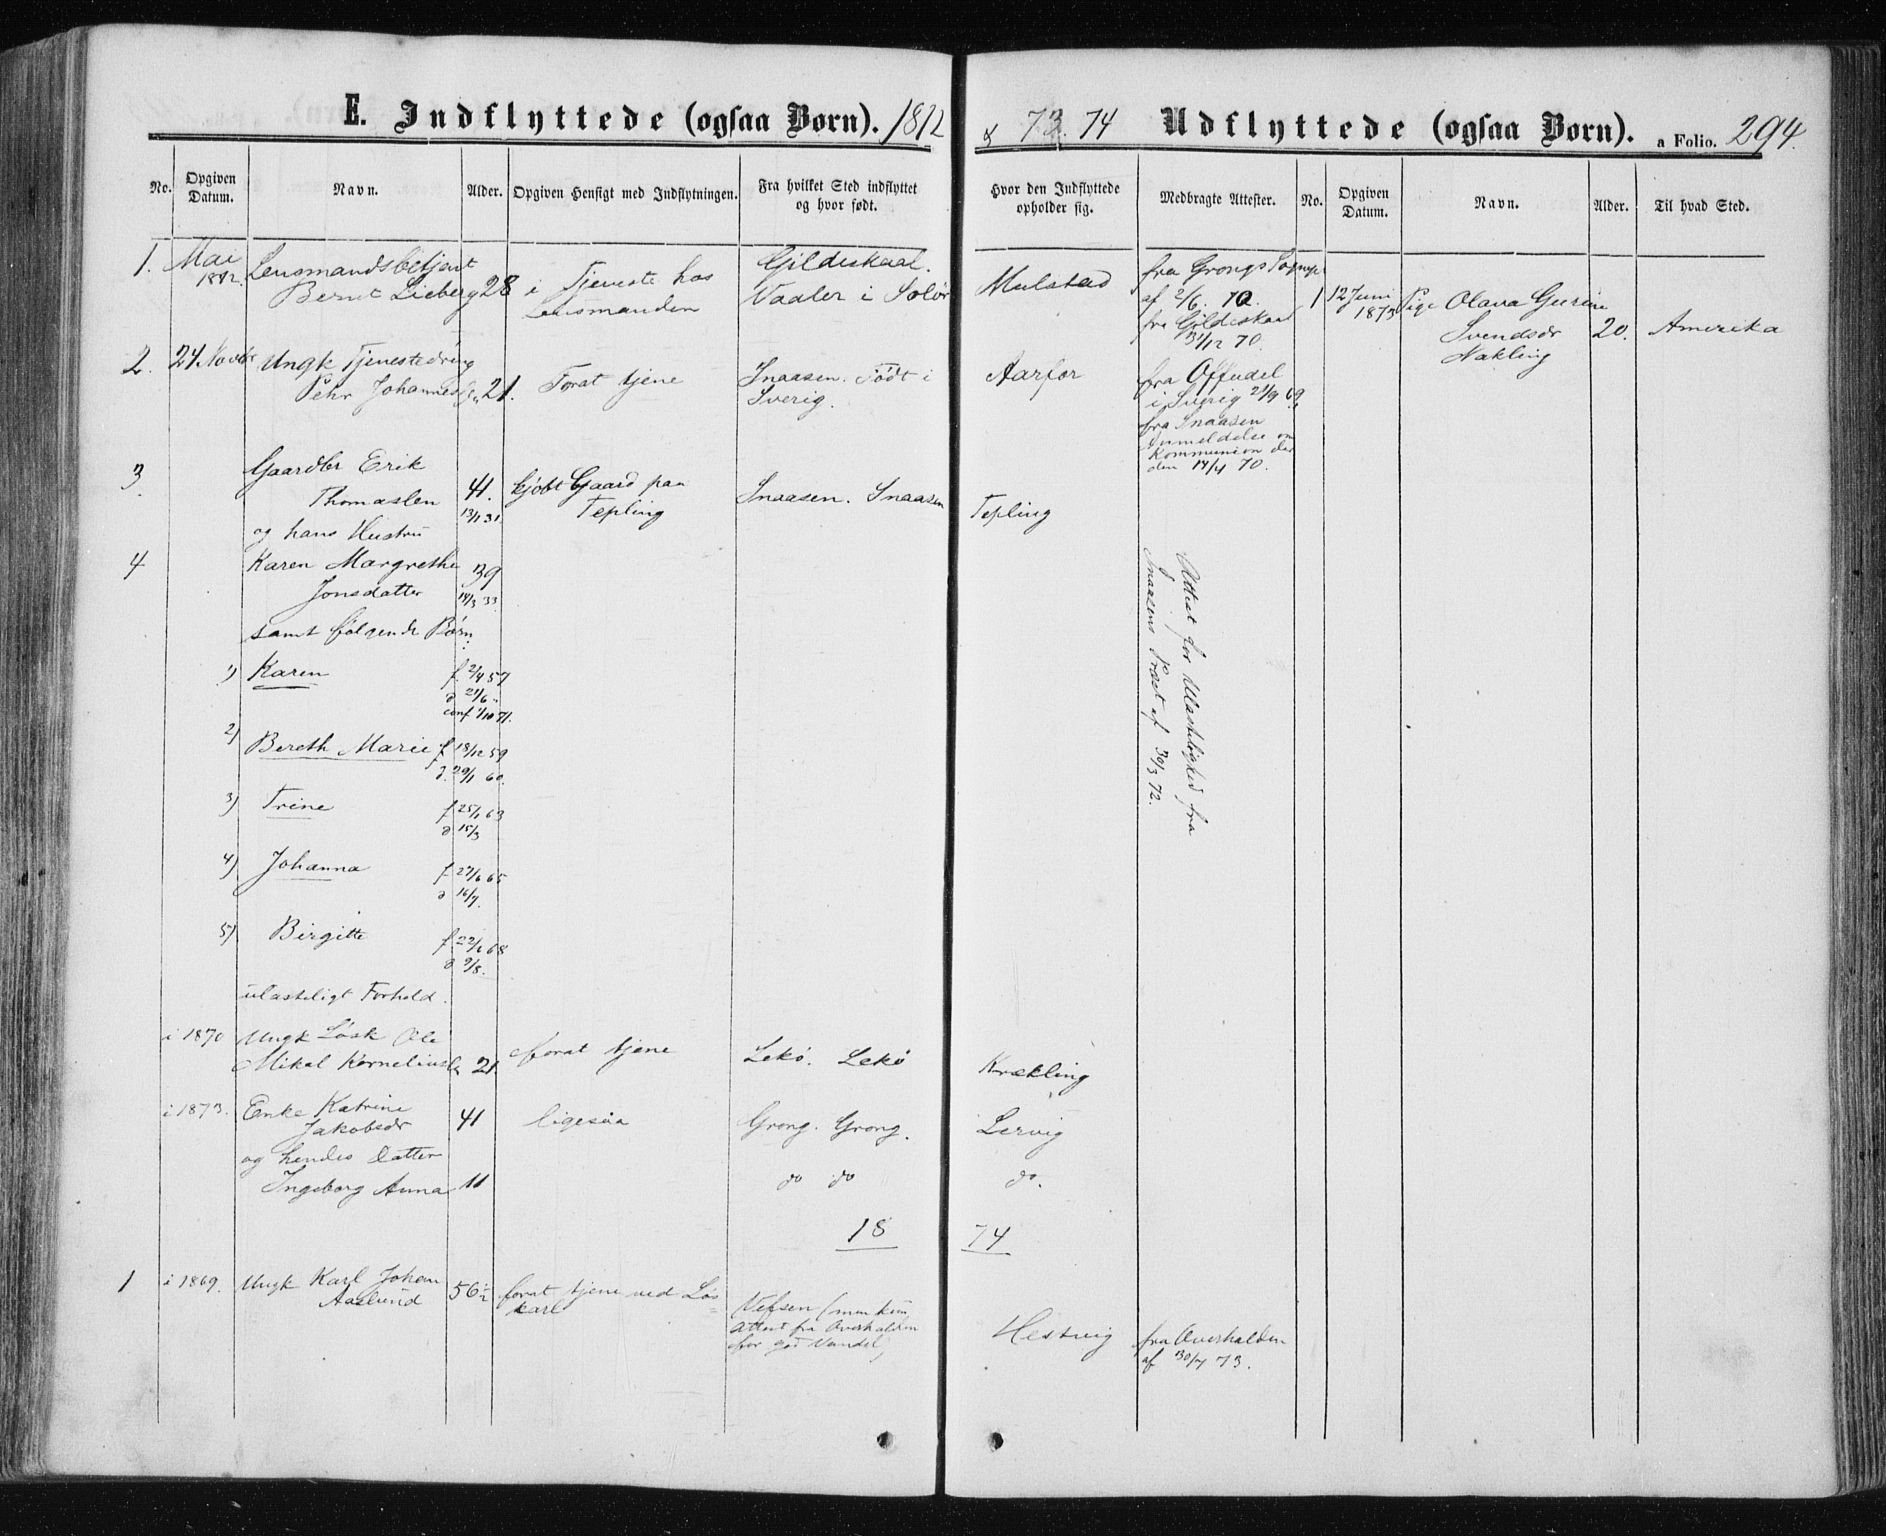 E. Indflyttede (ogsaa Børn). 1872
& 73. 74 Udflyttede (ogsaa Børn). a Folio. 294.
No. Opgiven Datum. Navn. Alder. Opgiven Hensigt med Indflytningen. Fra hvilket Sted indflyttet og hvor født. Hvor den Indflyttede opholder sig. Medbragte Attester. No. Opgiven Datum. Navn. Alder. Til hvad Sted.
1. Mai 1872. Lensmandsbetjent
Bernt Lieberg 28
i Tjeneste hos
Lensmanden
Gildeskaal.
Vaaler i Solør
Mulstad
fra Grongs Sognepr
af 2/6. 70.
fra Gildeskaal
31/12 70.
1 12 Juni 1873 Pige Olava Gurine
Svendsdr
Nakling
20. Amerika
2. 24 Novbr Ungk Tjenestedreng
Pehr Johannessen 21.
Forat tjene
Snaasen. Født i
Sverig.
Aarfor
fra Offudel
i Sverig 21/9 69,
fra Snaasen
Anmeldelse om
Kommunion der
den 14/4 70.
3. Gaardbr Erik
Thomassen
41.
13/1 31.
kjøbt Gaard paa
Tepling
Snaasen. Snaasen
Tepling
og hans Hustru
4 Karen Margrethe
Jonsdatter
39
14/3 33
Attest for Ulastelighed fra
Snaasens Præst af 30/3 72.
samt følgende Børn:
1) Karen f. 2/4 57
d 21/6 "
conf 1/10 71.
2) Bereth Marie f 18/12 59
d. 29/1 60.
3) Trine f 25/1 63
d 15/3
4) Johanna f 27/6 65
d 16/7.
5) Birgitte f 22/6 68
d 9/8.
ulasteligt Forhold.
i 1870 Ungk Løsk Ole
Mikal Korneliuss 21
forat tjene
Lekø. Lekø
Krækling
i 1873. Enke Katrine
Jakobsdr
41
ligesaa
Grong. Grong.
Lervig
og hendes Datter
Ingeborg Anna 11
do do
do.
18 74
1 i 1869. Ungk Karl Johan
Aaslund
56 1/2
forat tjene ved Løs
karl
Vefsen (men kun
Attest fra Overhalden
for god Vandel)
Hestvig
fra Overhalden
af 30/7 73.